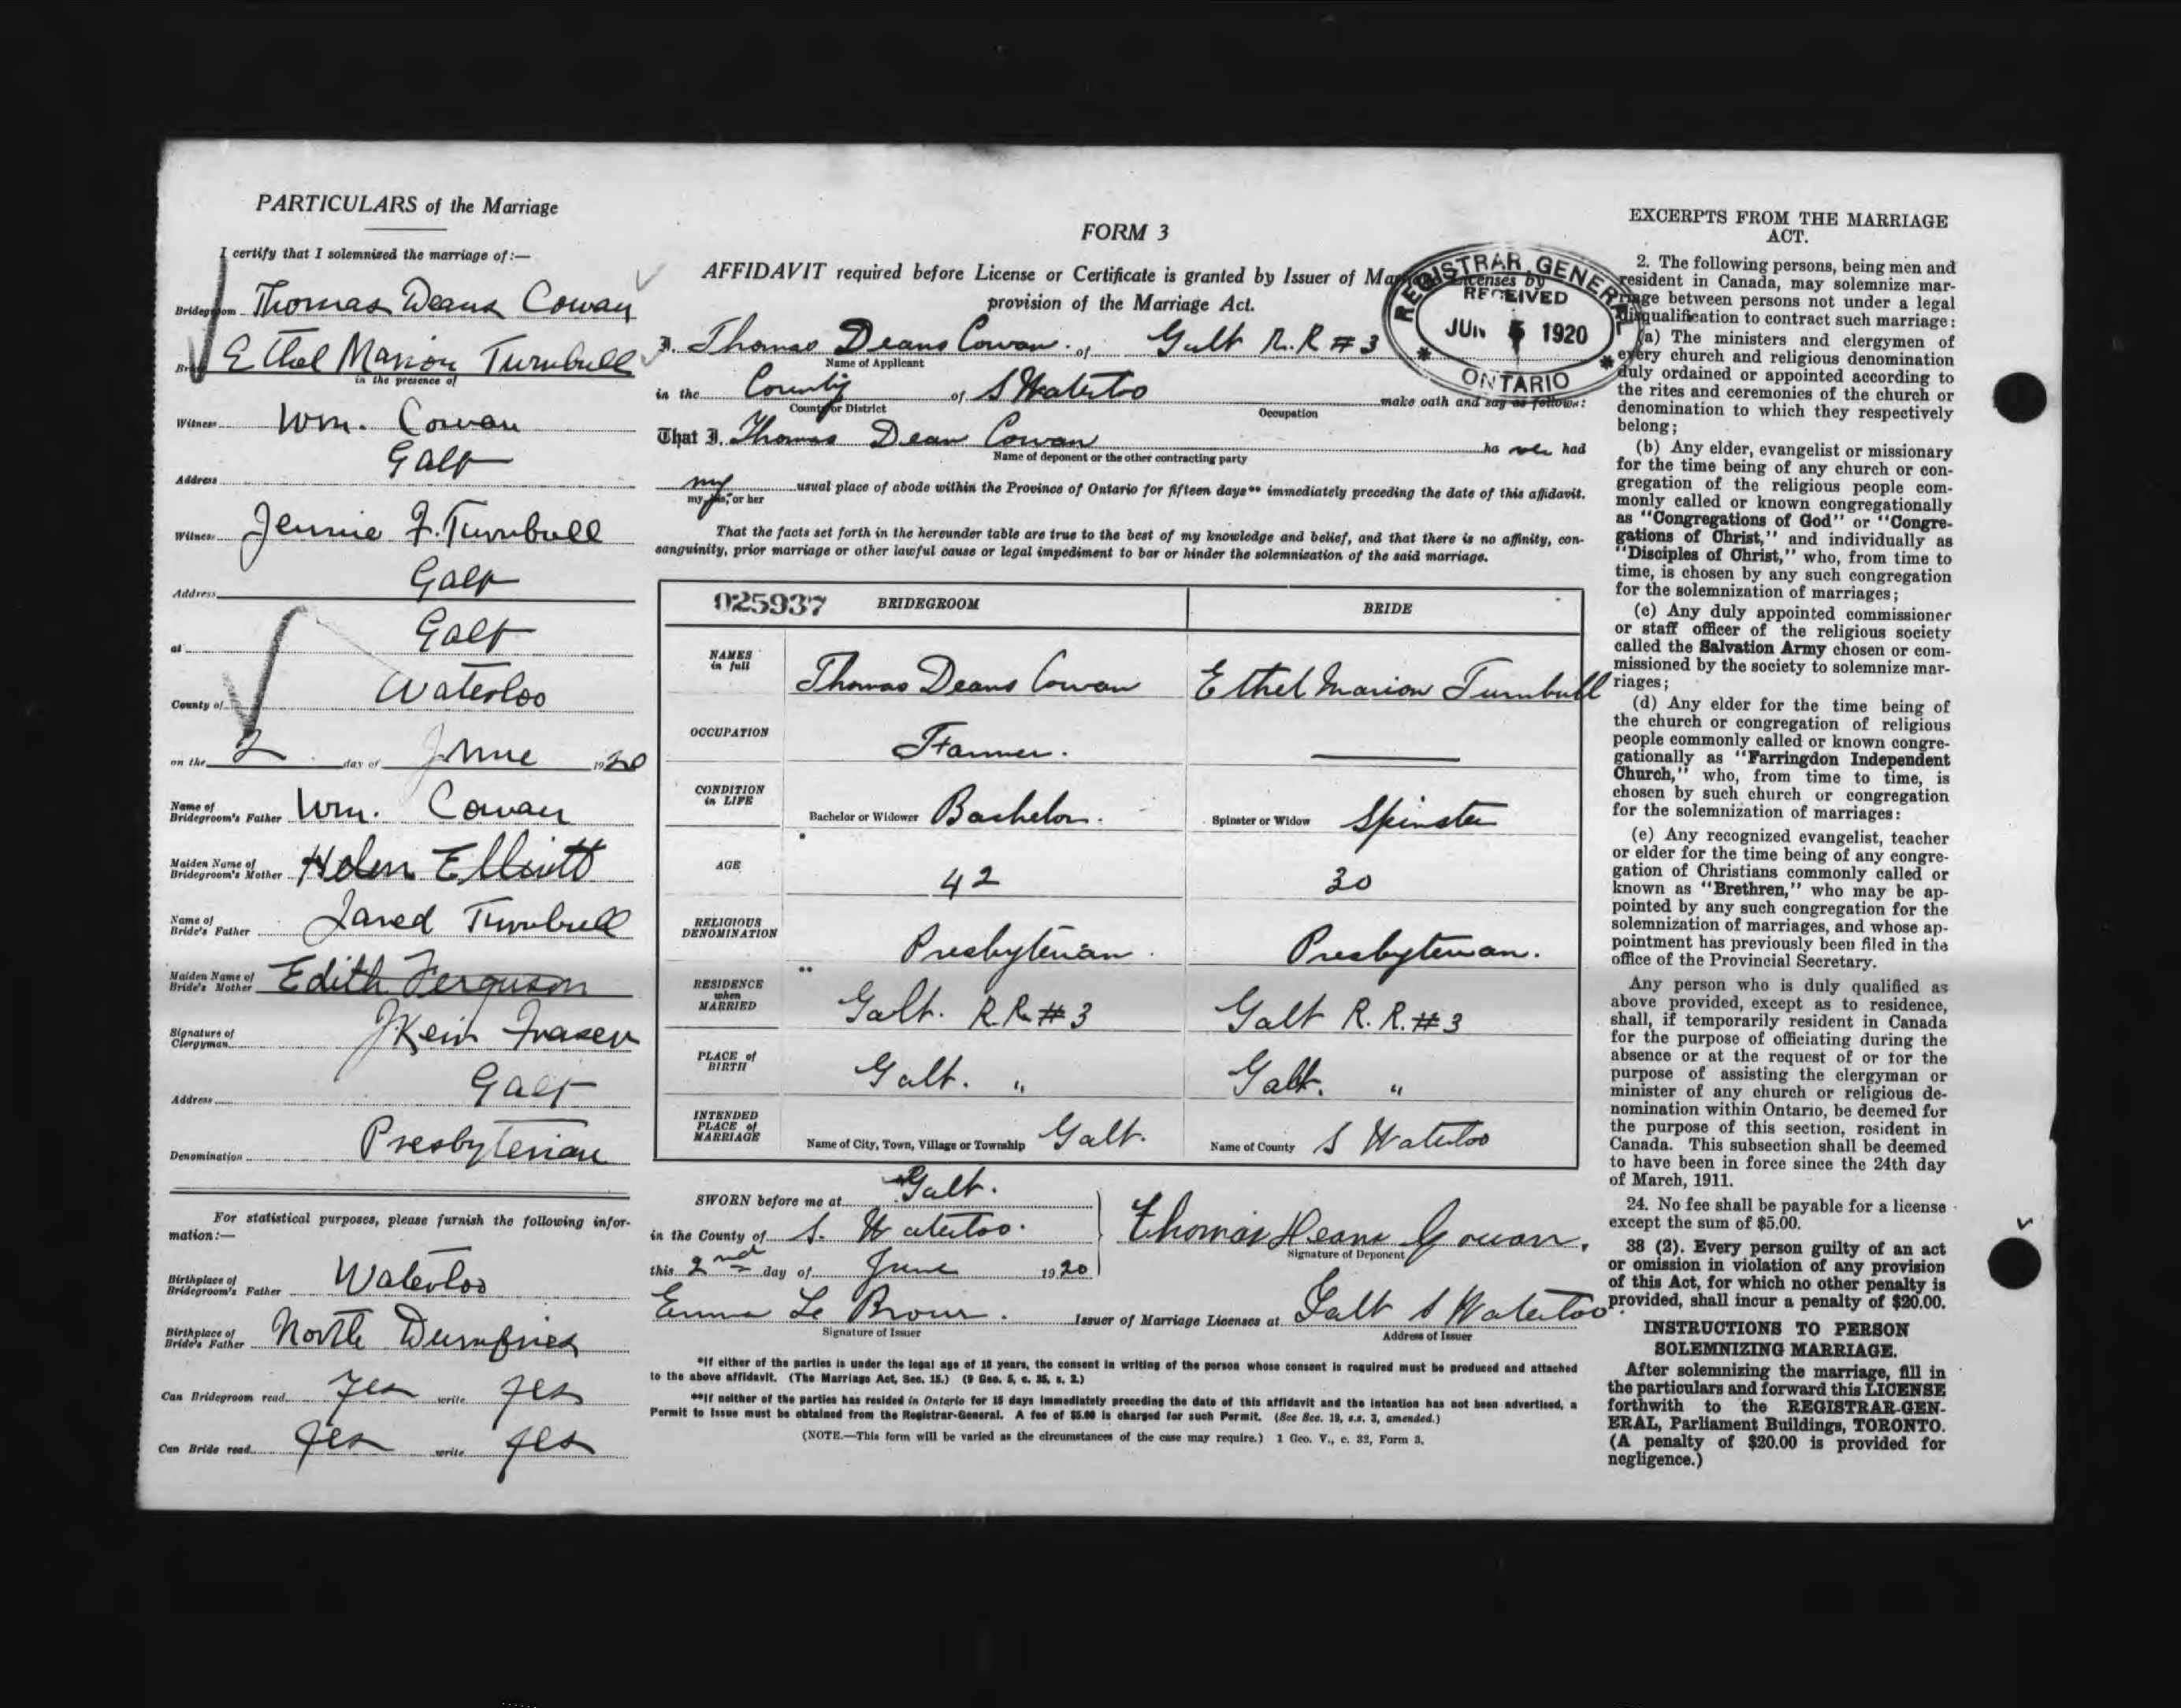 PARTICULARS of the Marriage
I certify that I solemnized the marriage of:—
Bridegroom Thomas Deans Cowan
Bride Ethel Marion Turnbull
in the presence of
Witness Wm. Cowan
Address Galt
Witness Jennie F. Turnbull
Address Galt
at Galt
County of Waterloo
on the 2 day of June 1920
Name of Bridegroom's Father Wm. Cowan
Maiden Name of Bridegroom's Mother Helen Elliott
Name of Bride's Father Jared Turnbull
Maiden Name of Bride's Mother Edith Ferguson
Signature of Clergyman Fraser
Address Galt
Denomination Presbyterian
For statistical purposes, please furnish the following infor-
mation:—
Birthplace of Bridegroom's Father Waterloo
Birthplace of Bride's Father North Dumfries
Can Bridegroom read yes write yes
Can Bride read yes write yes
FORM 3
AFFIDAVIT required before License or Certificate is granted by Issuer of Licenses by
provision of the Marriage Act.
REGISTRAR GENERAL
RECEIVED
JUN 5 1920
ONTARIO
I, Thomas Deans Cowan of Galt R.R #3
Name of Applicant
in the County of S Waterloo make oath and say as follows:
County or District Occupation
That I, Thomas Dean Cowan have had
Name of deponent or the other contracting party
my usual place of abode within the Province of Ontario for fifteen days** immediately preceding the date of this affidavit.
my, his, or her
That the facts set forth in the hereunder table are true to the best of my knowledge and belief, and that there is no affinity, con-
sanguinity, prior marriage or other lawful cause or legal impediment to bar or hinder the solemnization of the said marriage.
025937 BRIDEGROOM BRIDE
NAMES in full Thomas Deans Cowan Ethel Marion Turnbull
OCCUPATION Farmer.
CONDITION in LIFE Bachelor or Widower Bachelor. Spinster or Widow Spinster
AGE * 42 30
RELIGIOUS DENOMINATION Presbyterian. Presbyterian.
RESIDENCE when MARRIED ** Galt. R.R. #3 Galt R.R. #3
PLACE of BIRTH Galt. " Galt. "
INTENDED PLACE of MARRIAGE Name of City, Town, Village or Township Galt. Name of County S Waterloo
SWORN before me at Galt.
in the County of S. Waterloo.
this 2nd day of June 1920
Thomas Deans Cowan.
Signature of Deponent
Emma Le Brour. Issuer of Marriage Licenses at Galt S Waterloo.
Signature of Issuer Address of Issuer
*If either of the parties is under the legal age of 18 years, the consent in writing of the person whose consent is required must be produced and attached
to the above affidavit. (The Marriage Act, Sec. 15.) (9 Geo. 5, c. 35, s. 2.)
**If neither of the parties has resided in Ontario for 15 days immediately preceding the date of this affidavit and the intention has not been advertised, a
Permit to Issue must be obtained from the Registrar-General. A fee of $5.00 is charged for such Permit. (See Sec. 19, s.s. 3, amended.)
(NOTE.—This form will be varied as the circumstances of the case may require.) 1 Geo. V., c. 32, Form 3.
EXCERPTS FROM THE MARRIAGE
ACT.
2. The following persons, being men and
resident in Canada, may solemnize mar-
riage between persons not under a legal
disqualification to contract such marriage:
(a) The ministers and clergymen of
every church and religious denomination
duly ordained or appointed according to
the rites and ceremonies of the church or
denomination to which they respectively
belong;
(b) Any elder, evangelist or missionary
for the time being of any church or con-
gregation of the religious people com-
monly called or known congregationally
as "Congregations of God" or "Congre-
gations of Christ," and individually as
"Disciples of Christ," who, from time to
time, is chosen by any such congregation
for the solemnization of marriages;
(c) Any duly appointed commissioner
or staff officer of the religious society
called the Salvation Army chosen or com-
missioned by the society to solemnize mar-
riages;
(d) Any elder for the time being of
the church or congregation of religious
people commonly called or known congre-
gationally as "Farringdon Independent
Church," who, from time to time, is
chosen by such church or congregation
for the solemnization of marriages:
(e) Any recognized evangelist, teacher
or elder for the time being of any congre-
gation of Christians commonly called or
known as "Brethren," who may be ap-
pointed by any such congregation for the
solemnization of marriages, and whose ap-
pointment has previously been filed in the
office of the Provincial Secretary.
Any person who is duly qualified as
above provided, except as to residence,
shall, if temporarily resident in Canada
for the purpose of officiating during the
absence or at the request of or for the
purpose of assisting the clergyman or
minister of any church or religious de-
nomination within Ontario, be deemed for
the purpose of this section, resident in
Canada. This subsection shall be deemed
to have been in force since the 24th day
of March, 1911.
24. No fee shall be payable for a license
except the sum of $5.00.
38 (2). Every person guilty of an act
or omission in violation of any provision
of this Act, for which no other penalty is
provided, shall incur a penalty of $20.00.
INSTRUCTIONS TO PERSON
SOLEMNIZING MARRIAGE.
After solemnizing the marriage, fill in
the particulars and forward this LICENSE
forthwith to the REGISTRAR-GEN-
ERAL, Parliament Buildings, TORONTO.
(A penalty of $20.00 is provided for
negligence.)